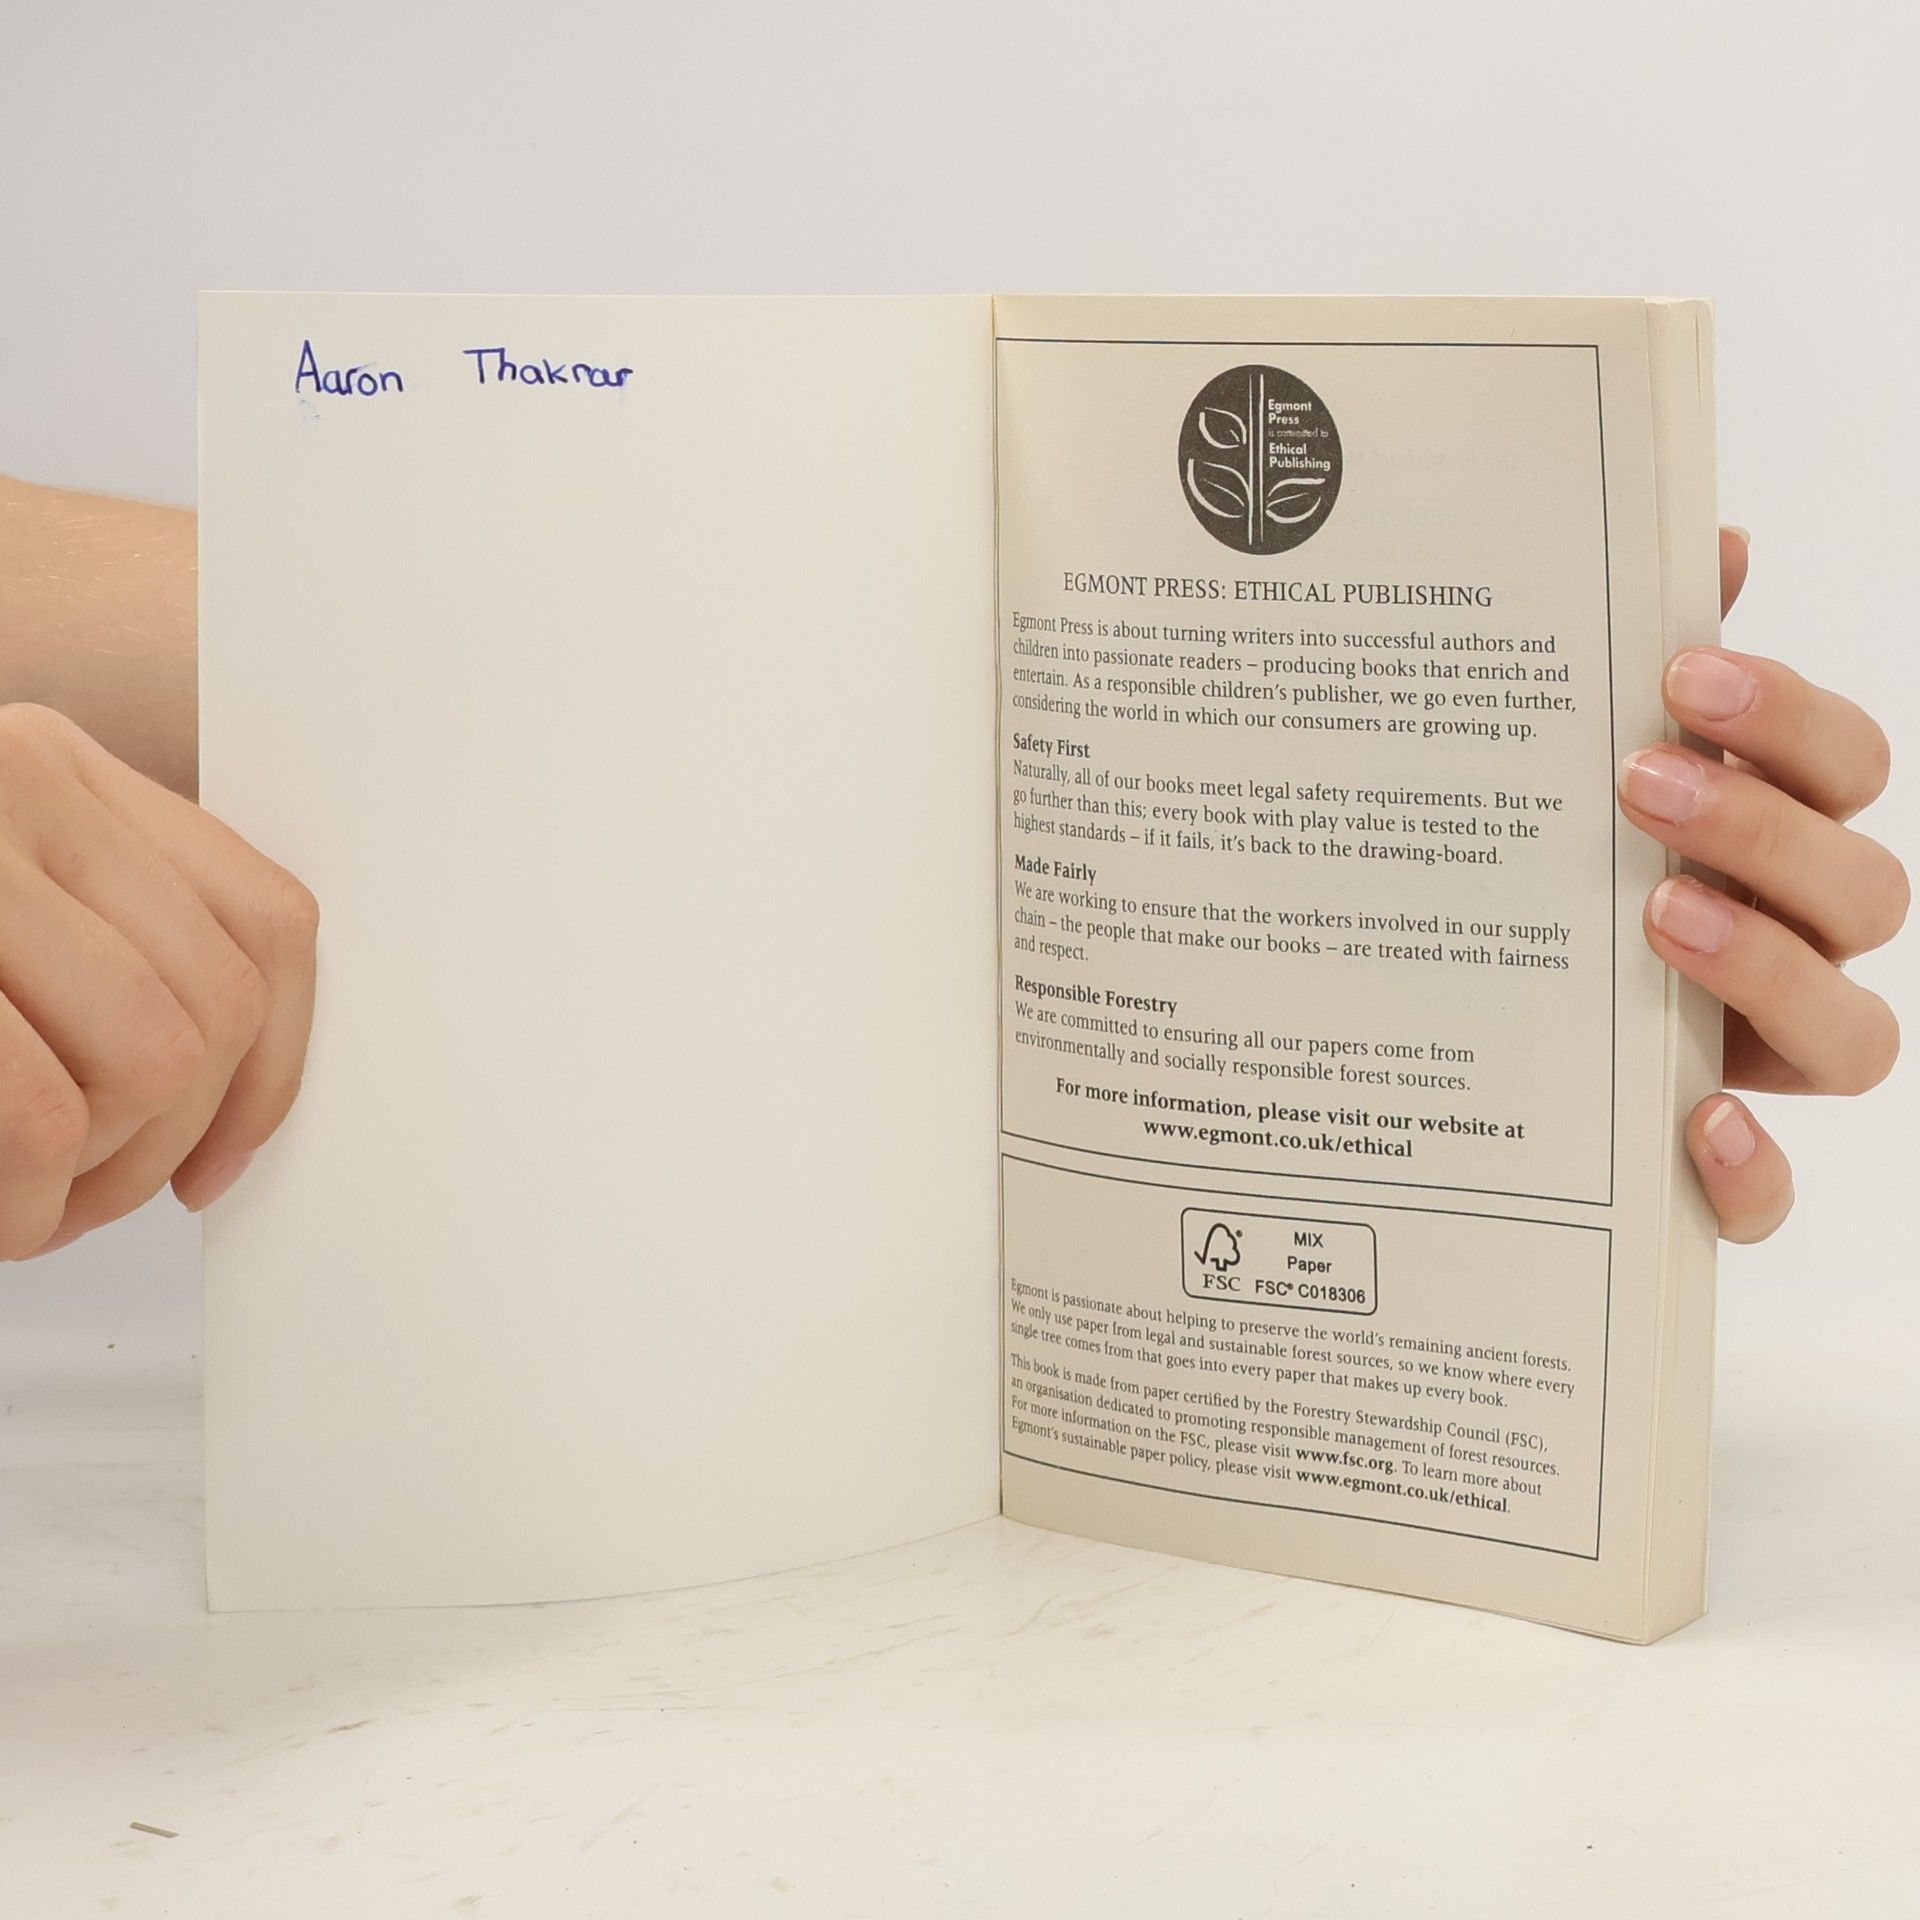 Aaron Thakrar
Egmont
Press
is committed to
Ethical
Publishing
EGMONT PRESS: ETHICAL PUBLISHING
Egmont Press is about turning writers into successful authors and
children into passionate readers – producing books that enrich and
entertain. As a responsible children's publisher, we go even further,
considering the world in which our consumers are growing up.
Safety First
Naturally, all of our books meet legal safety requirements. But we
go further than this; every book with play value is tested to the
highest standards – if it fails, it's back to the drawing-board.
Made Fairly
We are working to ensure that the workers involved in our supply
chain – the people that make our books – are treated with fairness
and respect.
Responsible Forestry
We are committed to ensuring all our papers come from
environmentally and socially responsible forest sources.
For more information, please visit our website at
www.egmont.co.uk/ethical
MIX
Paper
FSC FSC® C018306
Egmont is passionate about helping to preserve the world's remaining ancient forests.
We only use paper from legal and sustainable forest sources, so we know where every
single tree comes from that goes into every paper that makes up every book.
This book is made from paper certified by the Forestry Stewardship Council (FSC),
an organisation dedicated to promoting responsible management of forest resources.
For more information on the FSC, please visit www.fsc.org. To learn more about
Egmont's sustainable paper policy, please visit www.egmont.co.uk/ethical.